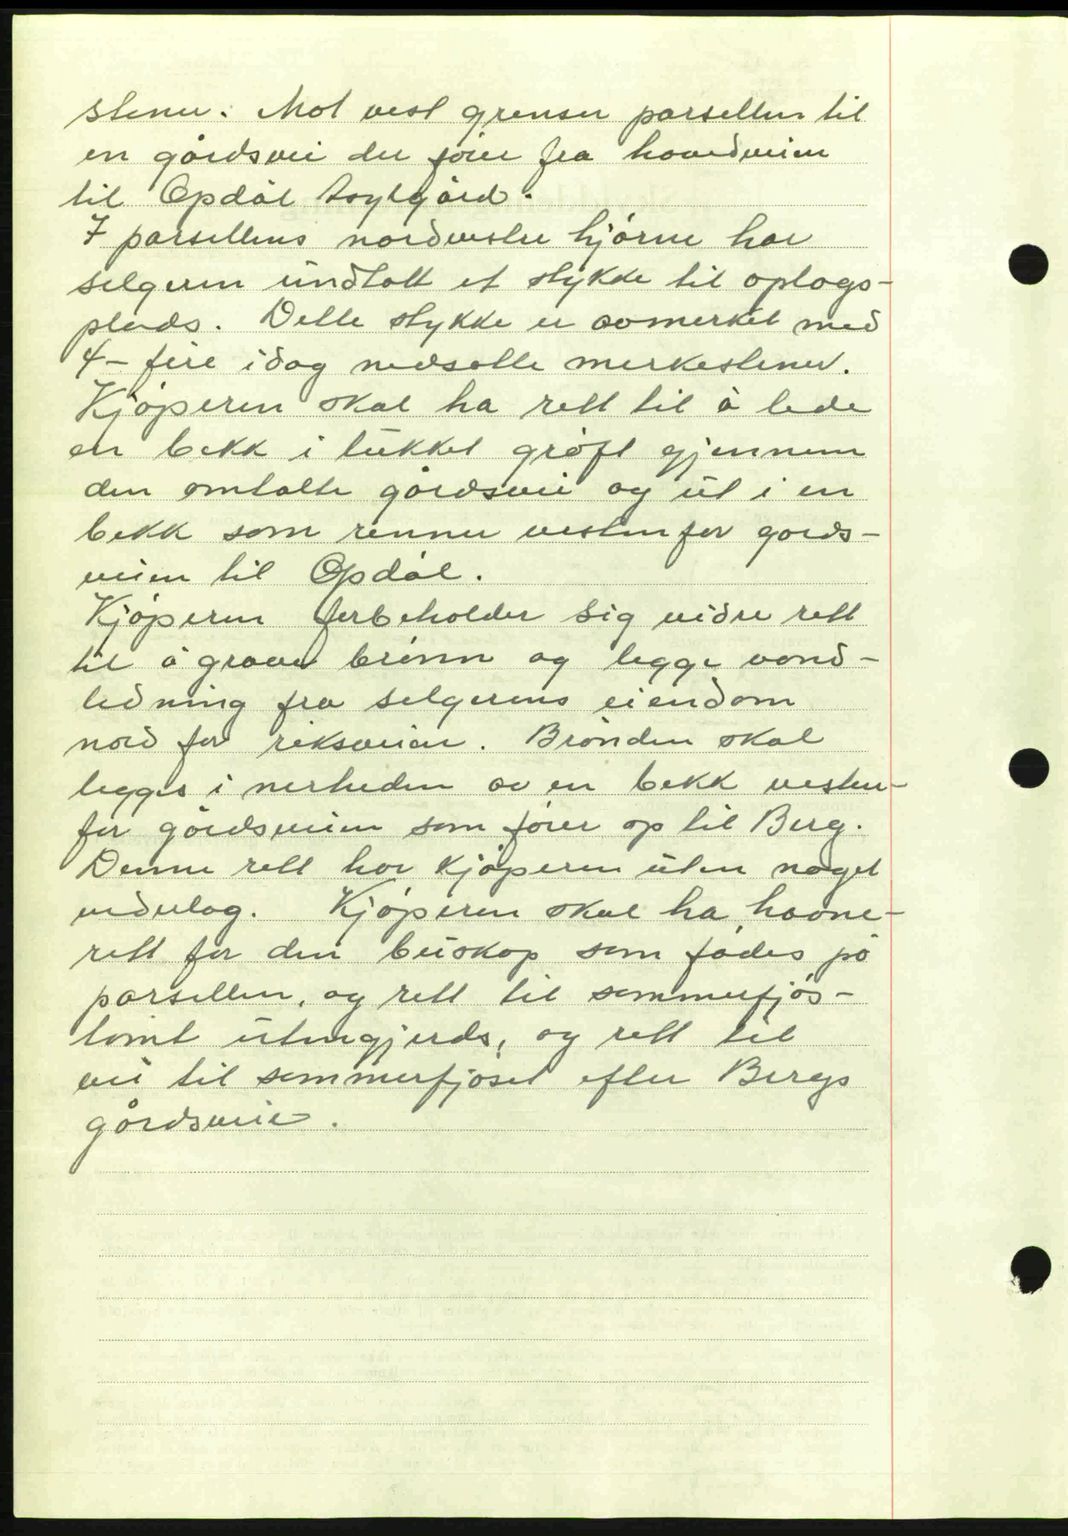 stener. Mot vest grenser parsellen til
en gårdsvei der fører fra hovedveien
til Opdøl Asylgård.
I parsellens nordvestre hjørne har
selgeren undtatt et stykke til oplags-
plads. Dette stykke er avmerket med
4- fire idag nedsatte merkestener.
Kjøperen skal ha rett til å lede
en bekk i lukket grøft gjennem
den omtalte gårdsvei og ut i en
bekk som renner vestenfor gårds-
veien til Opdøl.
Kjøperen forbeholder sig videre rett
til å grave brønn og legge vand-
ledning fra selgerens eiendom
nord for riksveien. Brønden skal
legges i nerheden av en bekk vesten-
for gårdsveien som fører op til Berg.
Denne rett har kjøperen uten noget
vederlag. Kjøperen skal ha havne-
rett for den buskap som fødes på
parsellen, og rett til sommerfjøs-
tomt utengjerds, og rett til
vei til sommerfjøset efter Bergs
gårdsvei.